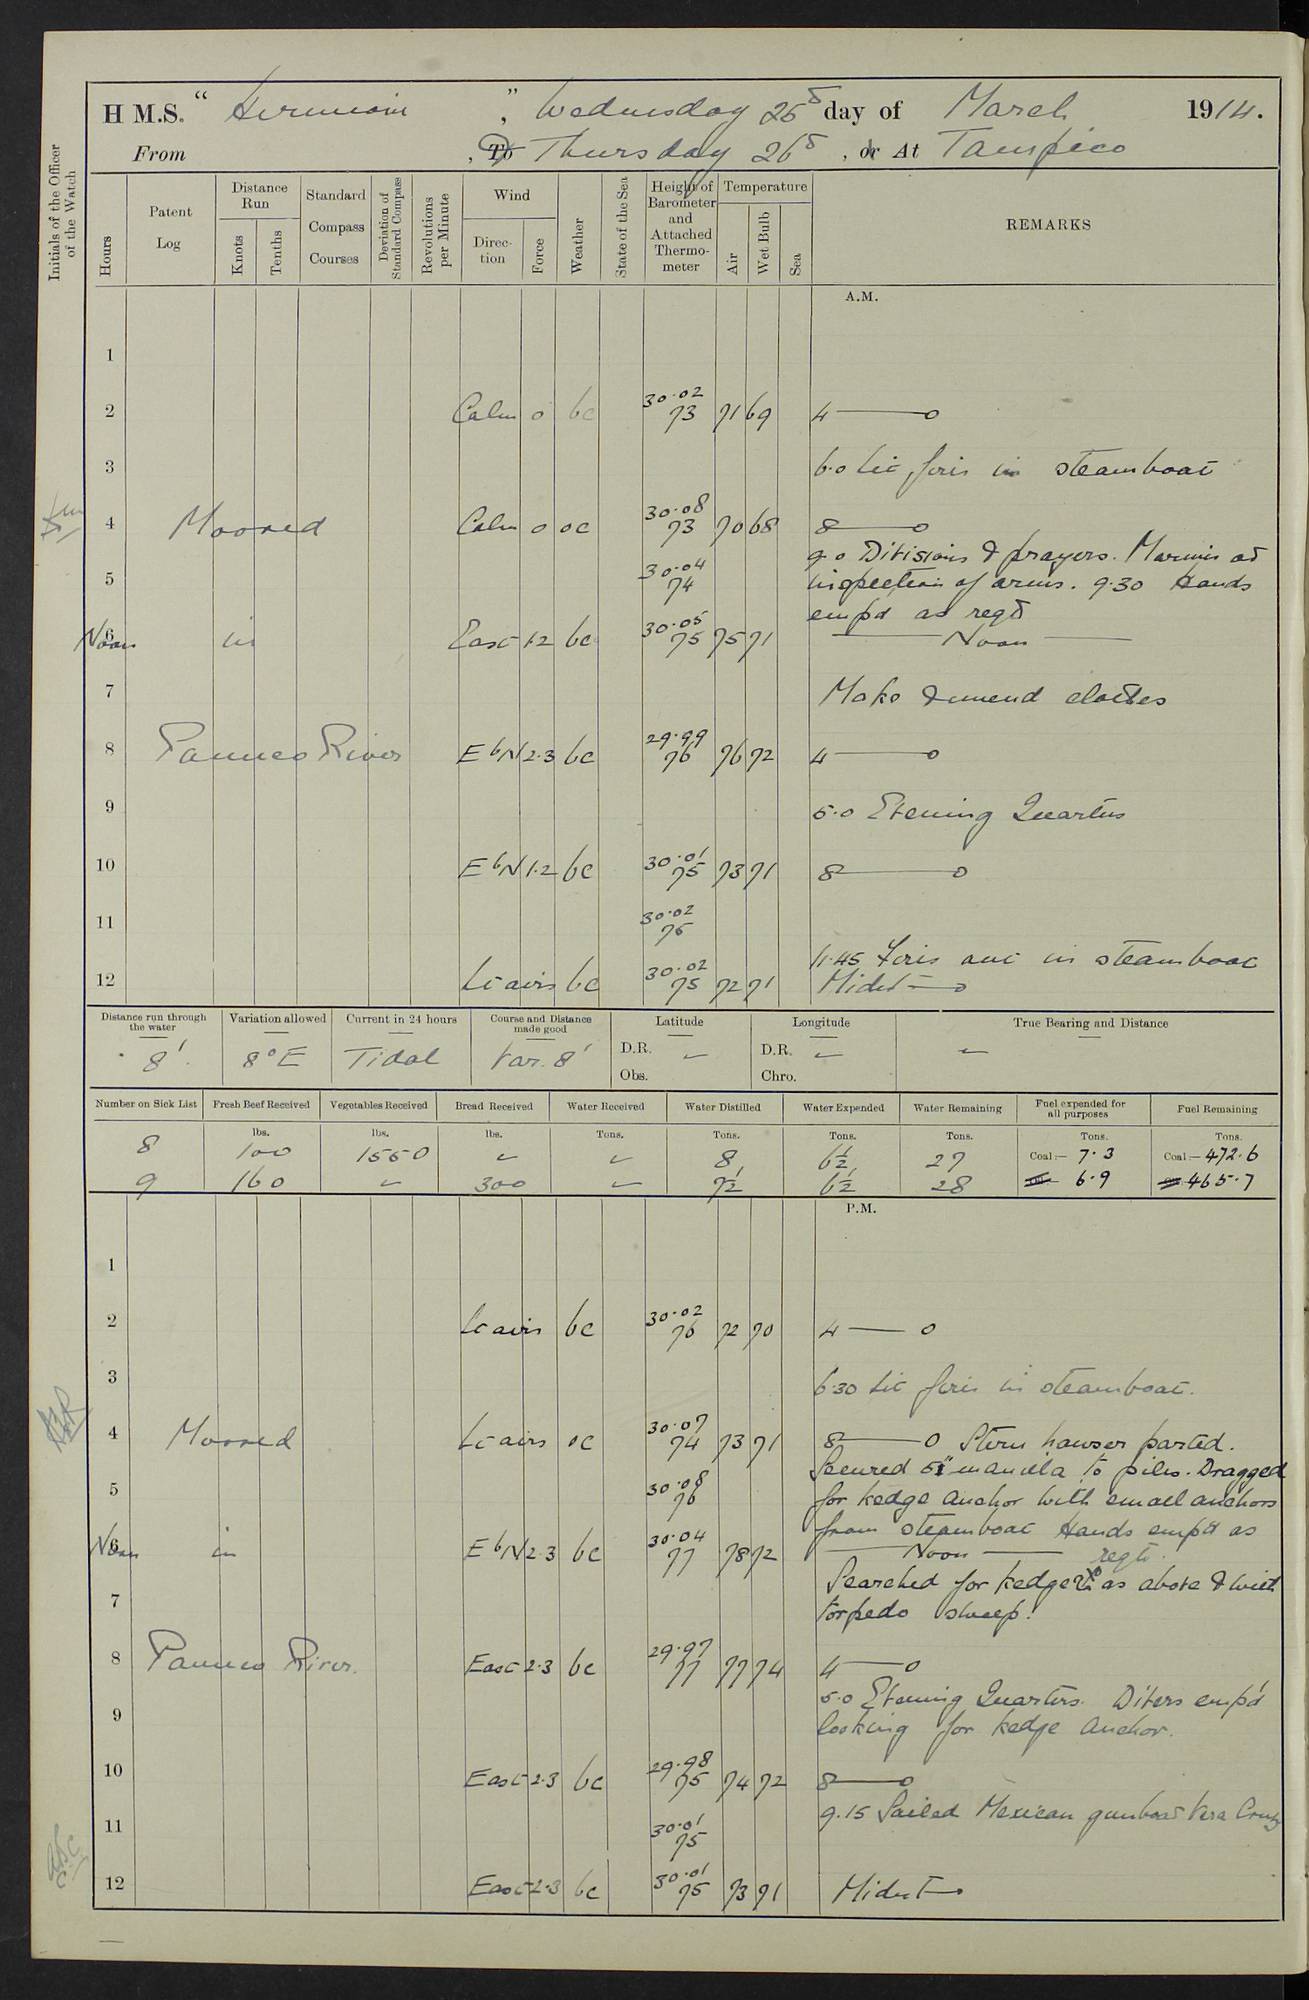 H M.S. " Hermione ", Wednesday 25th day of March 1914.
From , To & Thursday 26th , or At Tampico
Initials of the Officer of the Watch
Hours
Patent Log
Distance Run
Knots
Tenths
Standard Compass Courses
Deviation of Standard Compass
Revolutions per Minute
Wind
Direction
Force
Weather
State of the Sea
Height of Barometer and Attached Thermometer
Temperature
Air
Wet Bulb
Sea
REMARKS
A.M.
1
2 Calm 0 bc 30.02 73 71 69 4
3 6.0 Lit fires in steamboat
4 Moored Calm 0 oc 30.08 73 70 68 8
9.0 Divisions & prayers. Marines at
5 30.04 74 inspection of arms. 9.30 Hands
empd as reqd
6 Noon in East 1.2 bc 30.05 75 75 71 Noon
7 Make & mend clothes
8 Panuco River E b N 2.3 bc 29.99 76 76 72 4
9 5.0 Evening Quarters
10 E b N 1.2 bc 30.01 75 73 71 8
11 30.02 75
11.45 Fires out in steamboat
12 Lt airs bc 30.02 75 72 71 Midnt
Distance run through the water
Variation allowed
Current in 24 hours
Course and Distance made good
Latitude
Longitude
True Bearing and Distance
8' 8°E Tidal Var. 8' D.R. D.R.
Obs. Chro.
Number on Sick List
Fresh Beef Received
Vegetables Received
Bread Received
Water Received
Water Distilled
Water Expended
Water Remaining
Fuel expended for all purposes
Fuel Remaining
lbs. lbs. lbs. Tons. Tons. Tons. Tons. Tons. Tons.
8 100 1550 8 6½ 27 Coal:— 7.3 Coal:— 472.6
9 160 300 7½ 6½ 28 6.9 465.7
P.M.
1
2 Lt airs bc 30.02 76 72 70 4
3 6.30 Lit fires in steamboat.
4 Moored Lt airs oc 30.07 74 73 71 8 Stern hawser parted.
Secured 5" manilla to piles. Dragged
5 30.08 76 for kedge anchor with small anchors
from steamboat Hands empd as
6 Noon in E b N 2.3 bc 30.04 77 78 72 Noon reqd.
Searched for kedge as above & with
7 torpedo sweep.
8 Panuco River. East 2.3 bc 29.97 77 77 74 4
5.0 Evening Quarters. Divers empd
9 looking for kedge anchor.
10 East 2.3 bc 29.98 75 74 72 8
9.15 Sailed Mexican gunboat Vera Cruz
11 30.01 75
12 East 2.3 bc 30.01 75 73 71 Midnt